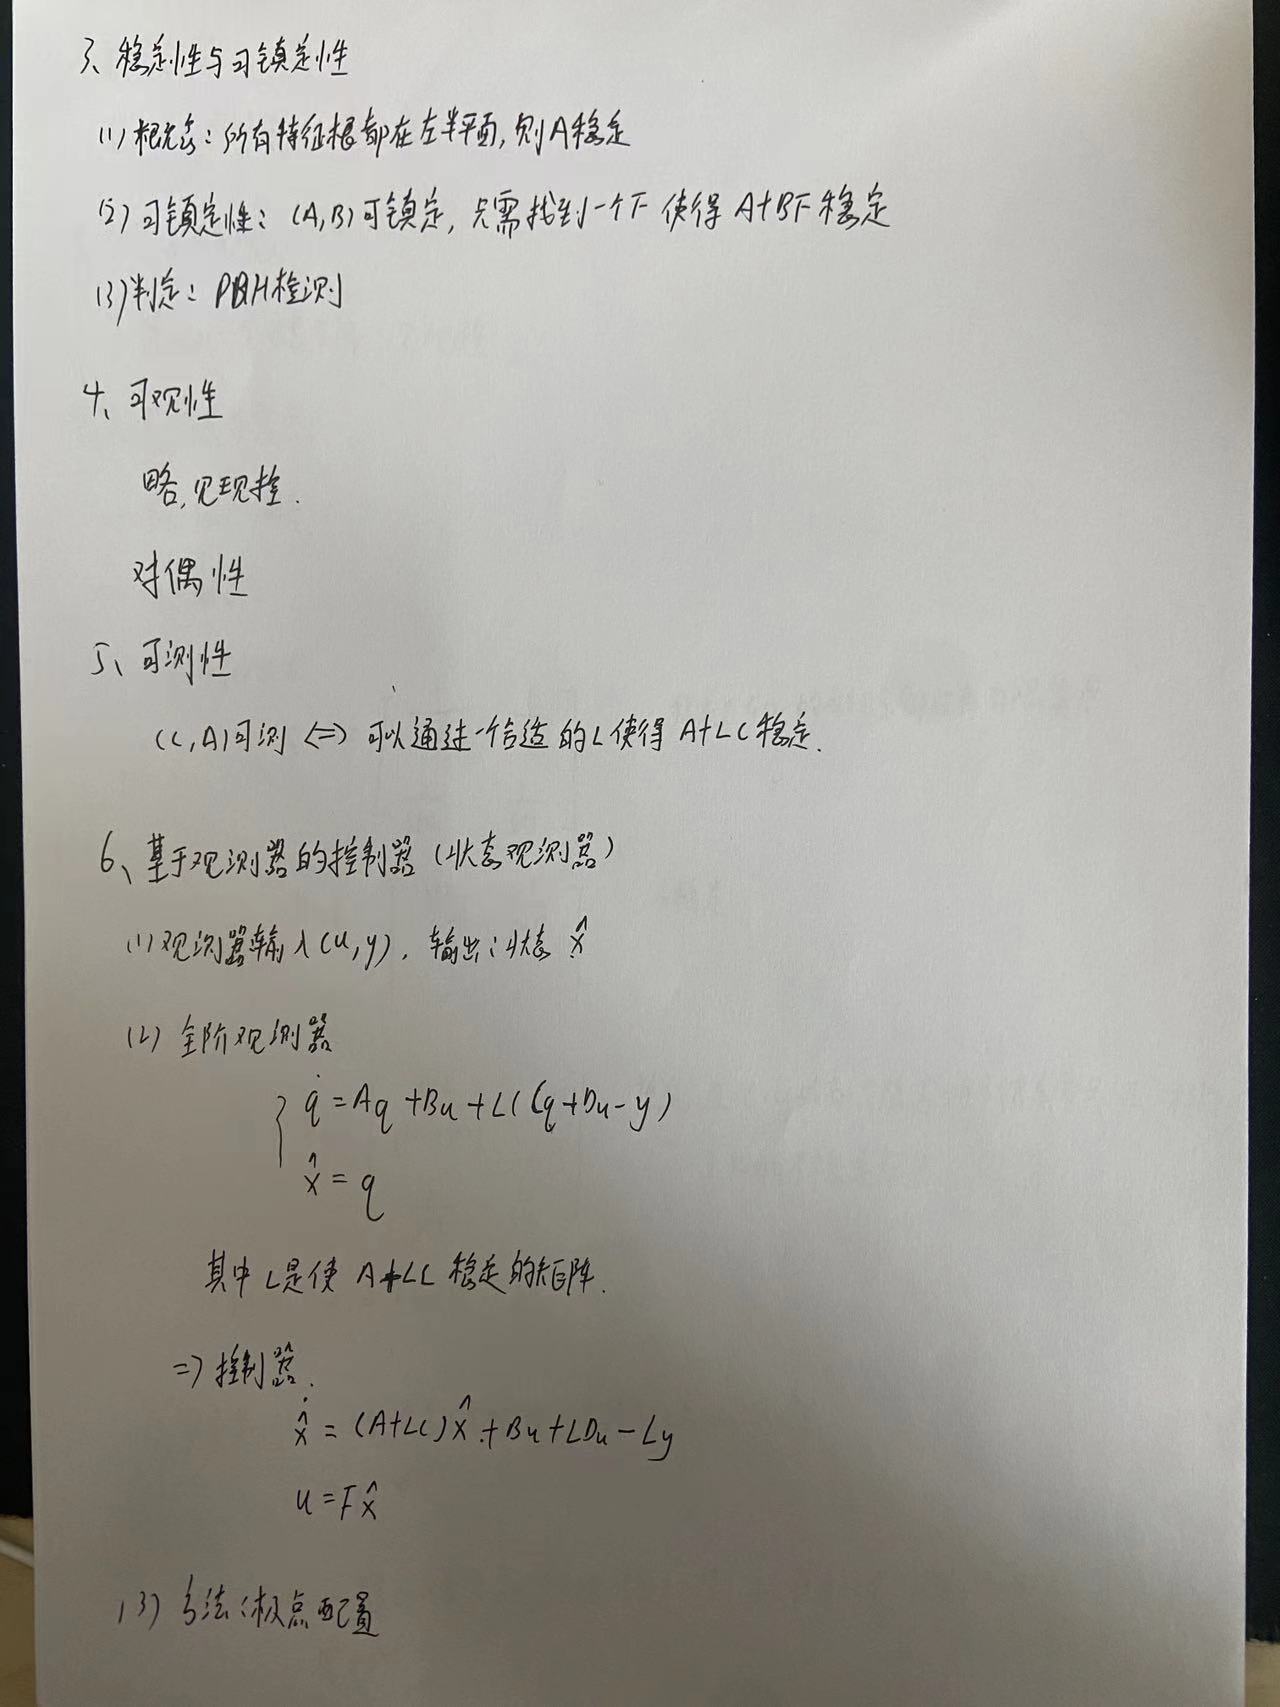 3、稳定性与可镇定性
(1)概念：所有特征根都在左半平面,则A稳定
(2)可镇定性：(A,B)可镇定,只需找到一个F使得 A+BF稳定
(3)判定：PBH检测
4、可观性
略,见现控.
对偶性
5、可测性
(C,A)可测 <=> 可以通过一个合适的L使得 A+LC稳定.
6、基于观测器的控制器(状态观测器)
(1)观测器输入(u,y),输出：状态 x̂
(2)全阶观测器
q̇=Aq+Bu+L(Cq+Du-y)
x̂=q
其中L是使 A+LC 稳定的矩阵.
=>控制器.
x̂̇=(A+LC)x̂+Bu+LDu-Ly
u=Fx̂
(3)方法:极点配置